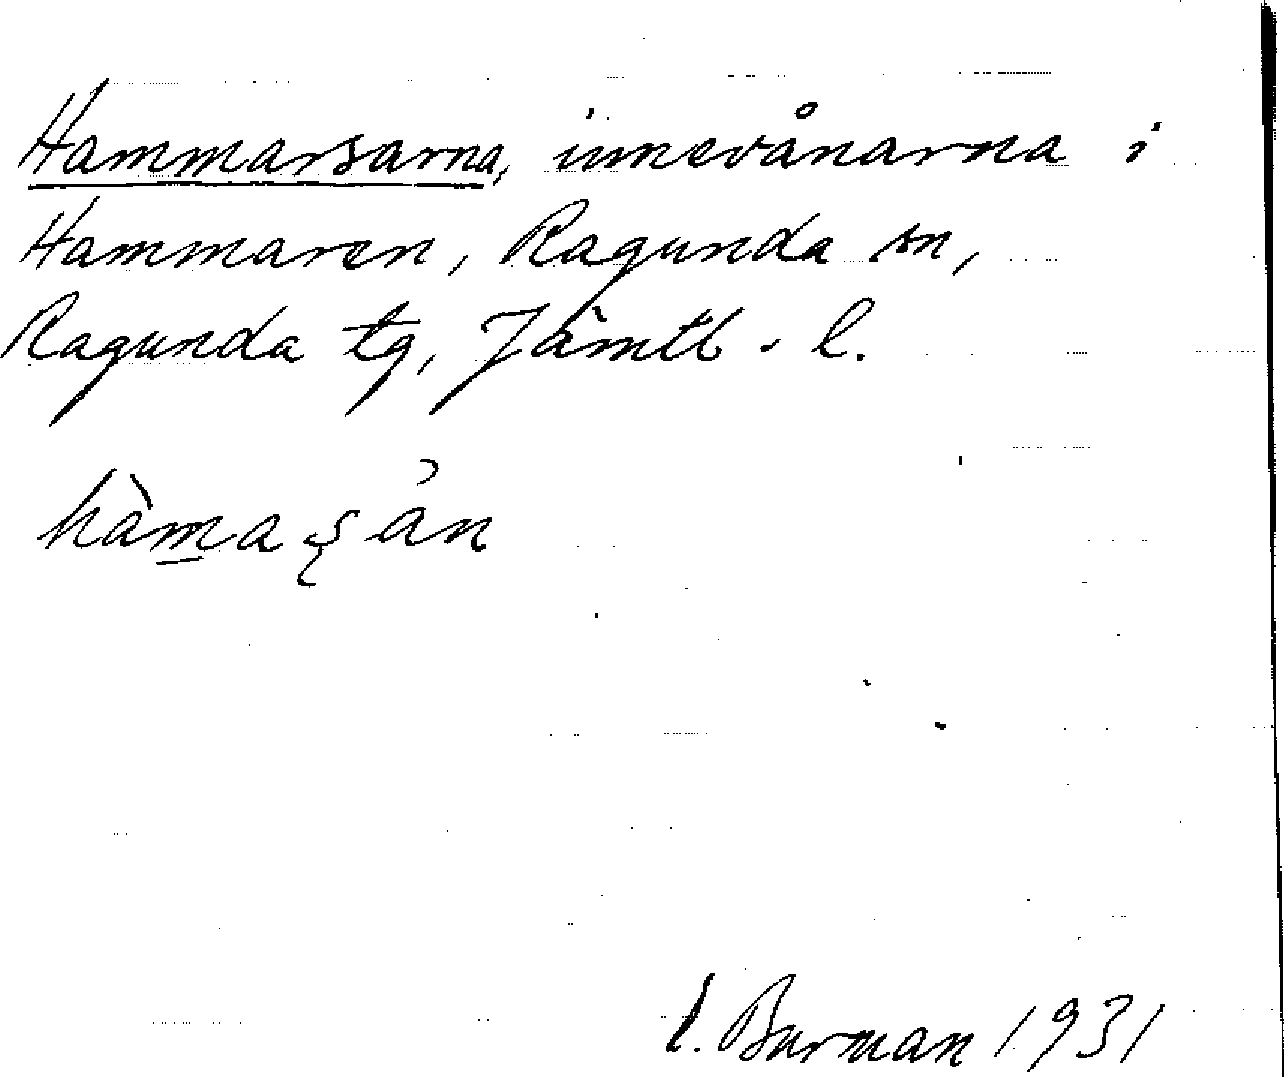 Hammarsarna, innevånarna i
Hammaren, Ragunda sn,
Ragunda tg, Jämtl. l.
hàmaʂán
E. Burman 1931